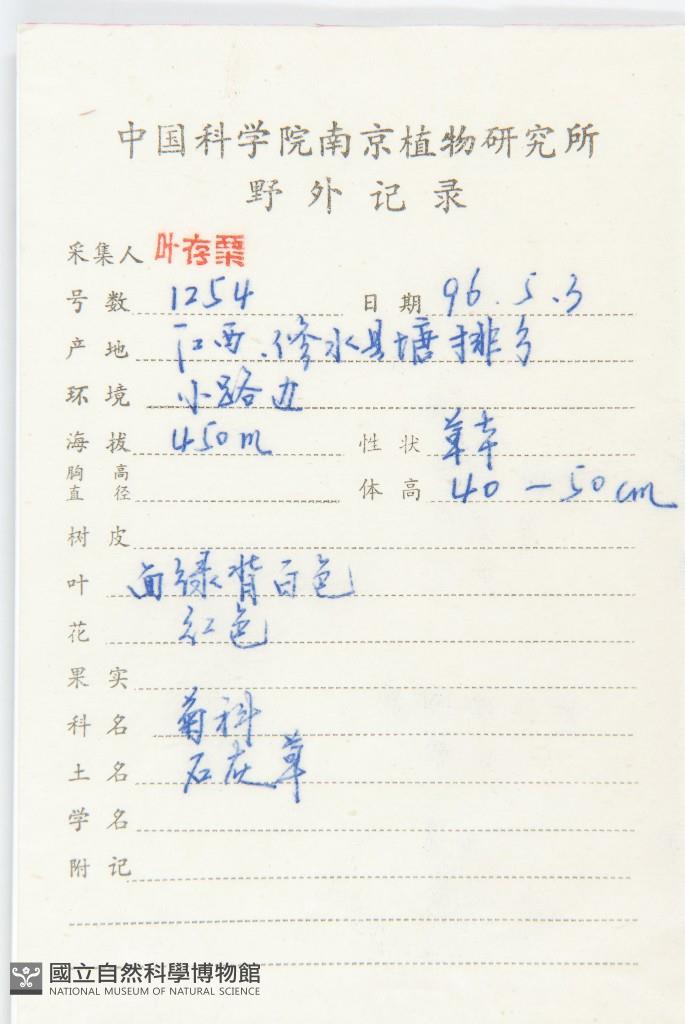 中国科学院南京植物研究所
野外记录
采集人 叶存粟
号数 1254 日期 96.5.3
产地 江西.修水县塘排乡
环境 小路边
海拔 450m 性状 草本
胸高直径 体高 40-50cm
树皮
叶 面绿背白色
花 红色
果实
科名 菊科
土名 石灰草
学名
附记
國立自然科學博物館
NATIONAL MUSEUM OF NATURAL SCIENCE